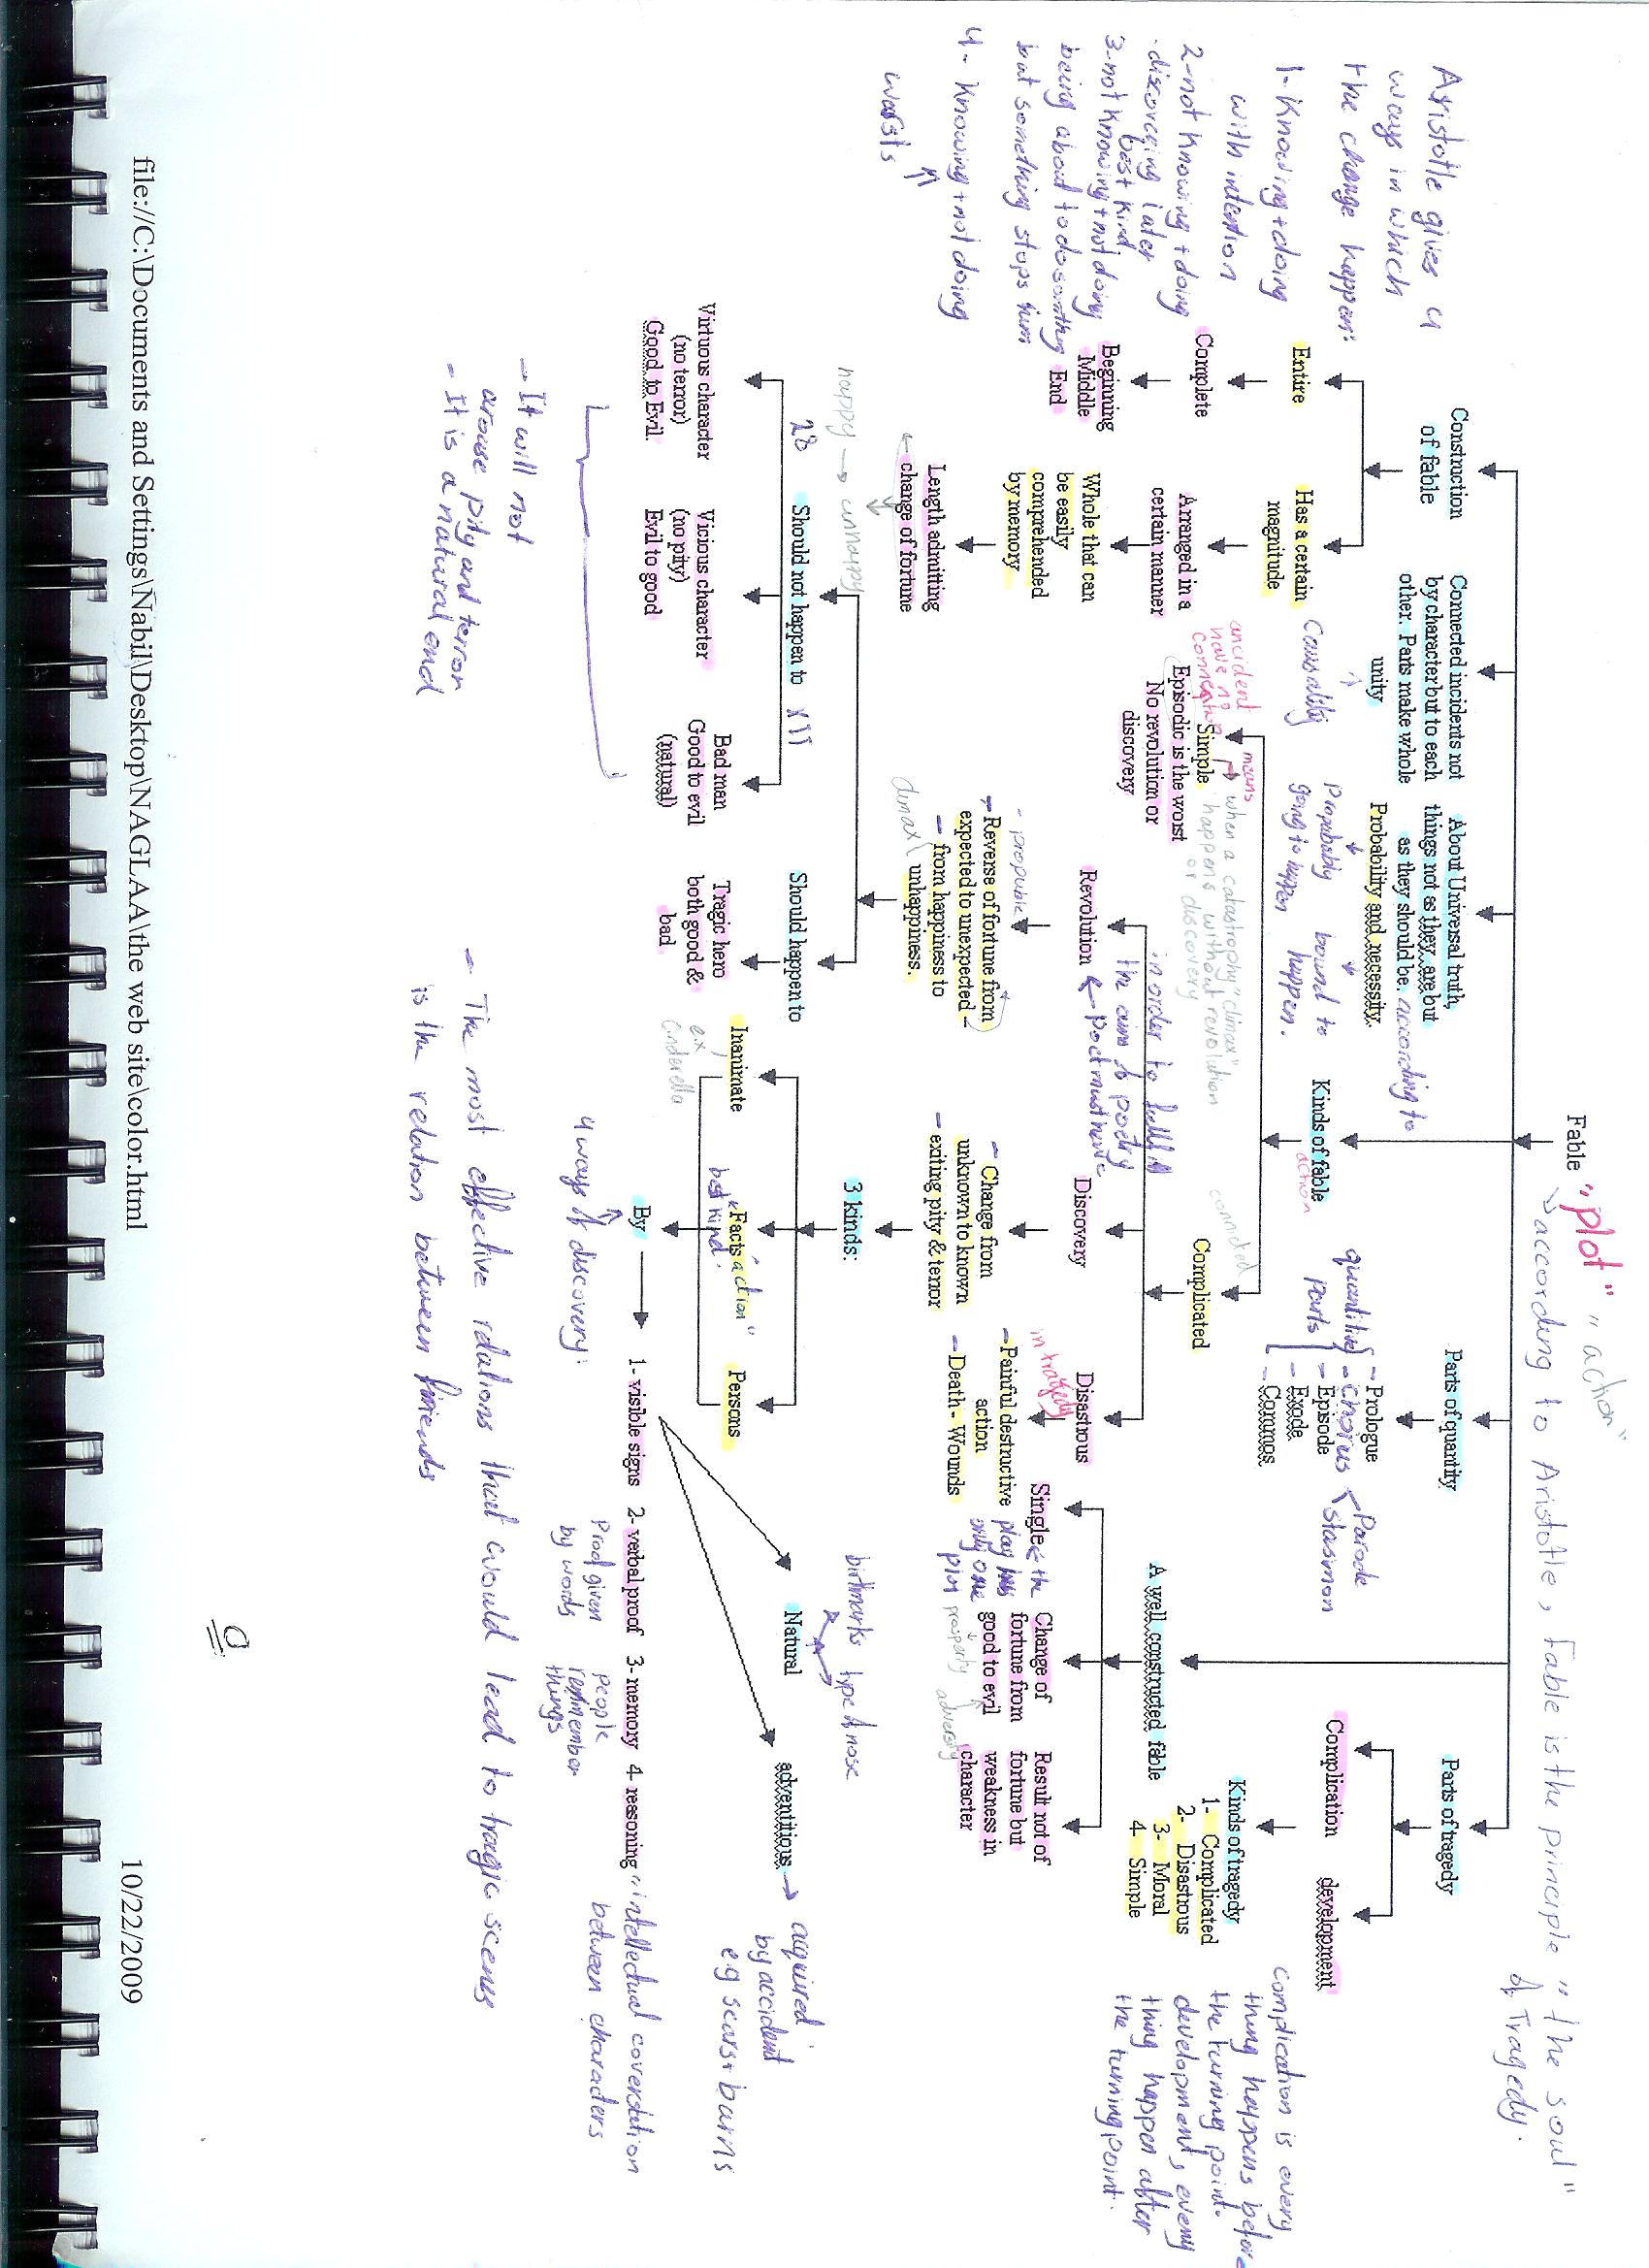 Fable "plot" "action"
→ according to Aristotle, fable is the principle "the soul"
of Tragedy.
Aristotle gives 4
ways in which
the change happen:
1- Knowing + doing
with intention
2- not knowing + doing
- discovering later
best kind
3- not knowing + not doing
being about to do somthing
but something stops him
4- Knowing + not doing
worsts
Construction
of fable
Entire
Complete
Beginning
Middle
End
Has a certain
magnitude
Arranged in a
certain manner
Whole that can
be easily
comprehended
by memory
Length admitting
change of fortune
happy → unhappy
Connected incidents not
by character but to each
other. Parts make whole
unity
Causality
About Universal truth,
things not as they are but
as they should be. according to
Probability and necessity.
Probably
going to happen
bound to
happen.
Kinds of fable
action
Simple
Episodic is the worst
No revolution or
discovery
means
when a catastrophy "climax"
happens without revolution
or discovery
connected
Complicated
in order to fulfill
the aim of poetry
poet must have
Revolution
- propable
- Reverse of fortune from
expected to unexpected -
- from happiness to
unhappiness.
climax
Discovery
- Change from
unknown to known
- exiting pity & terror
Disastrous
in tragedy
- Painful destructive
action
- Death - Wounds
Should not happen to
Virtuous character
(no terror)
Good to Evil.
Vicious character
(no pity)
Evil to good
Bad man
Good to evil
(natural)
- It will not
arouse pity and terror
- It is a natural end
Should happen to
Tragic hero
both good &
bad
3 kinds:
Inanimate
e.x
Cinderella
Facts "action"
best kind
Persons
By
4 ways of discovery:
1- visible signs 2- verbal proof 3- memory 4- reasoning "intellectual coverstation
between characters
Proof given
by words
people
remember
things
Natural
birthmarks type of nose
adventitious → acquired
by accident
e.g scars + barns
- The most effective relations that would lead to tragic scenes
is the relation between friends
Parts of quantity
quantitive
parts
- Prologue
- chorus
- Episode
- Exode
- Commos
Parode
stasmon
A well constructed fable
Single
the
play has
only one
plot
Change of
fortune from
good to evil
prosperity
adversity
Result not of
fortune but
weakness in
character
Parts of tragedy
Complication
development
Kinds of tragedy
1- Complicated
2- Disastrous
3- Moral
4- Simple
complication is every
thing happens before
the turning point.
development, every
thing happen after
the turning point.
file://C:\Documents and Settings\Nabil\Desktop\NAGLAA\the web site\color.html
10/22/2009